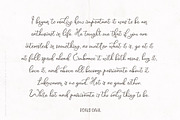 I began to realize how important it was to be an
enthusiast in life. He taught me that if you are
interested in something, no matter what it is, go at it
at full speed ahead. Embrace it with both arms, hug it,
love it, and above all become passionate about it.
Lukewarm is no good. Hot is no good either.
White hot and passionate is the only thing to be.